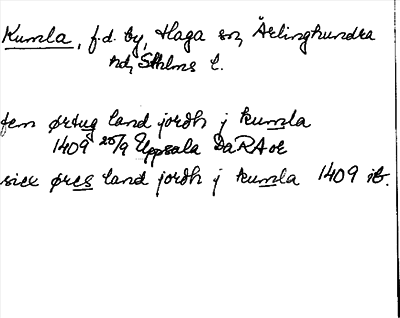 Kumla, f.d. by, Haga sn, Ärlinghundra
hd, Sthlms l.
fem ørtug land jordh j kumla
1409 25/9 Uppsala DaRAoE
siex øres land jordh j kumla 1409 ib.